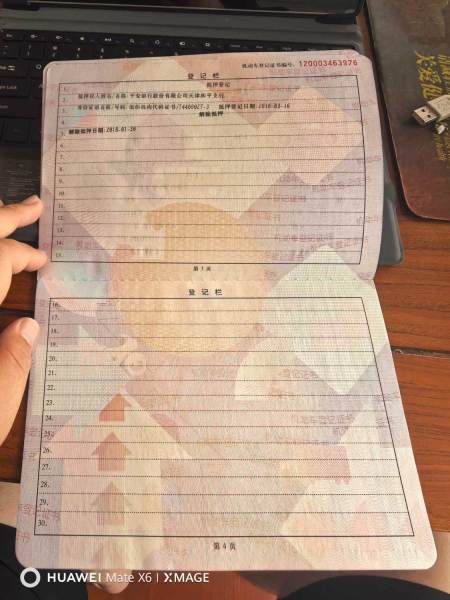 机动车登记证书编号: 120003463976
登记栏
1. 抵押登记
2. 抵押权人姓名/名称:平安银行股份有限公司天津和平支行
3. 身份证明名称/号码:组织机构代码证书/ 抵押登记日期:2016-03-16
4. 解除抵押
5. 解除抵押日期:2018-01-30
6.
7.
8.
9.
10.
11.
12.
13.
14.
15.
第3页
登记栏
16.
17.
18.
19.
20.
21.
22.
23.
24.
25.
26.
27.
28.
29.
30.
第4页
HUAWEI Mate X6 | XMAGE